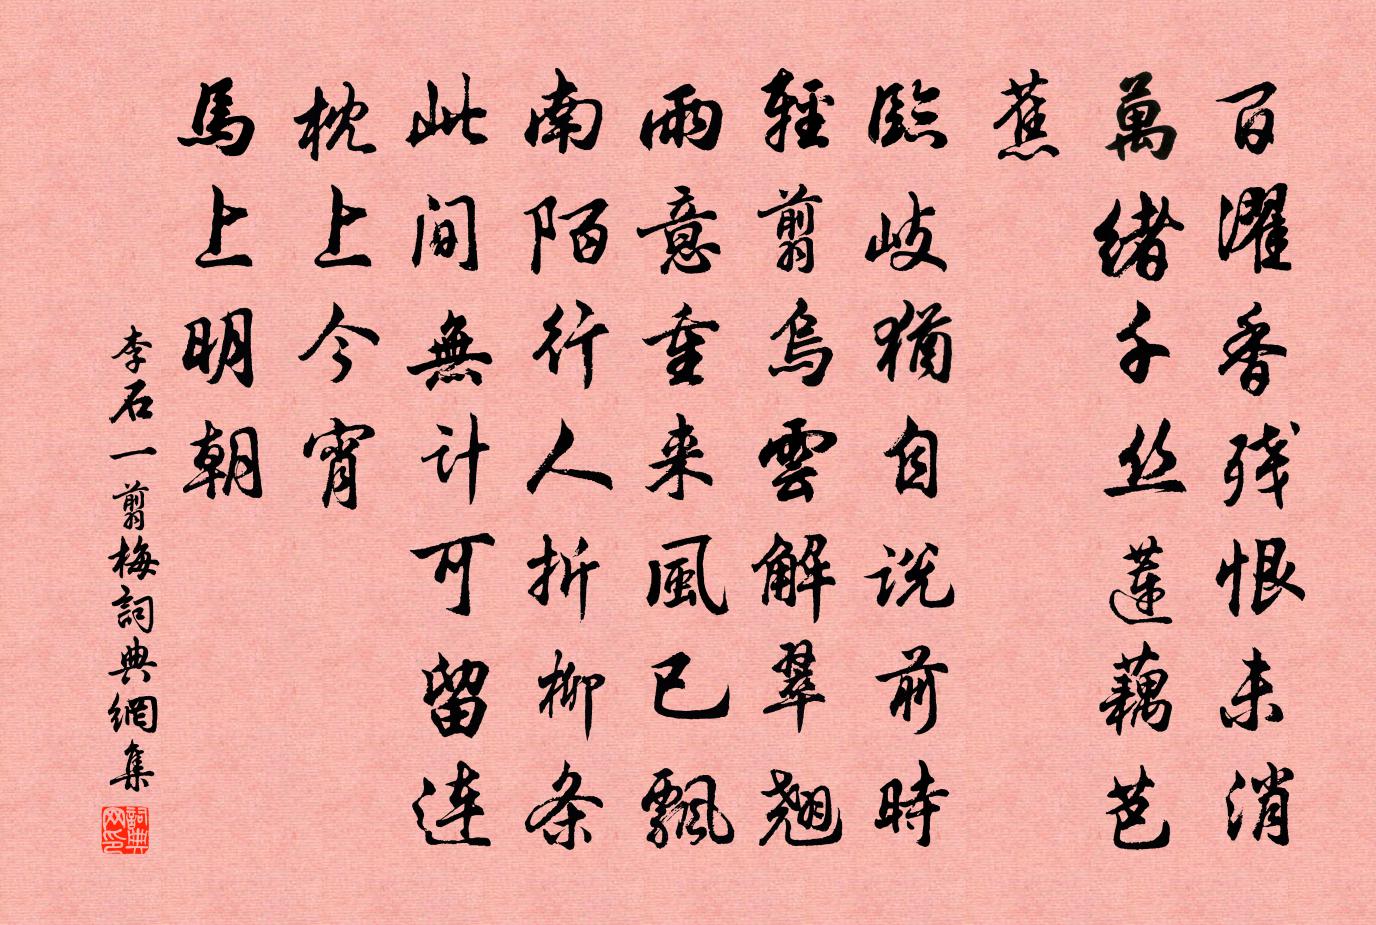 百濯香殘恨未消
萬緒千丝蓮藕芭
蕉
臨歧猶自説前時
輕剪烏雲解翠翹
雨意重来風已飄
南陌行人折柳条
此間無计可留连
枕上今宵
馬上明朝
李石一剪梅詞典網集
詞典网印